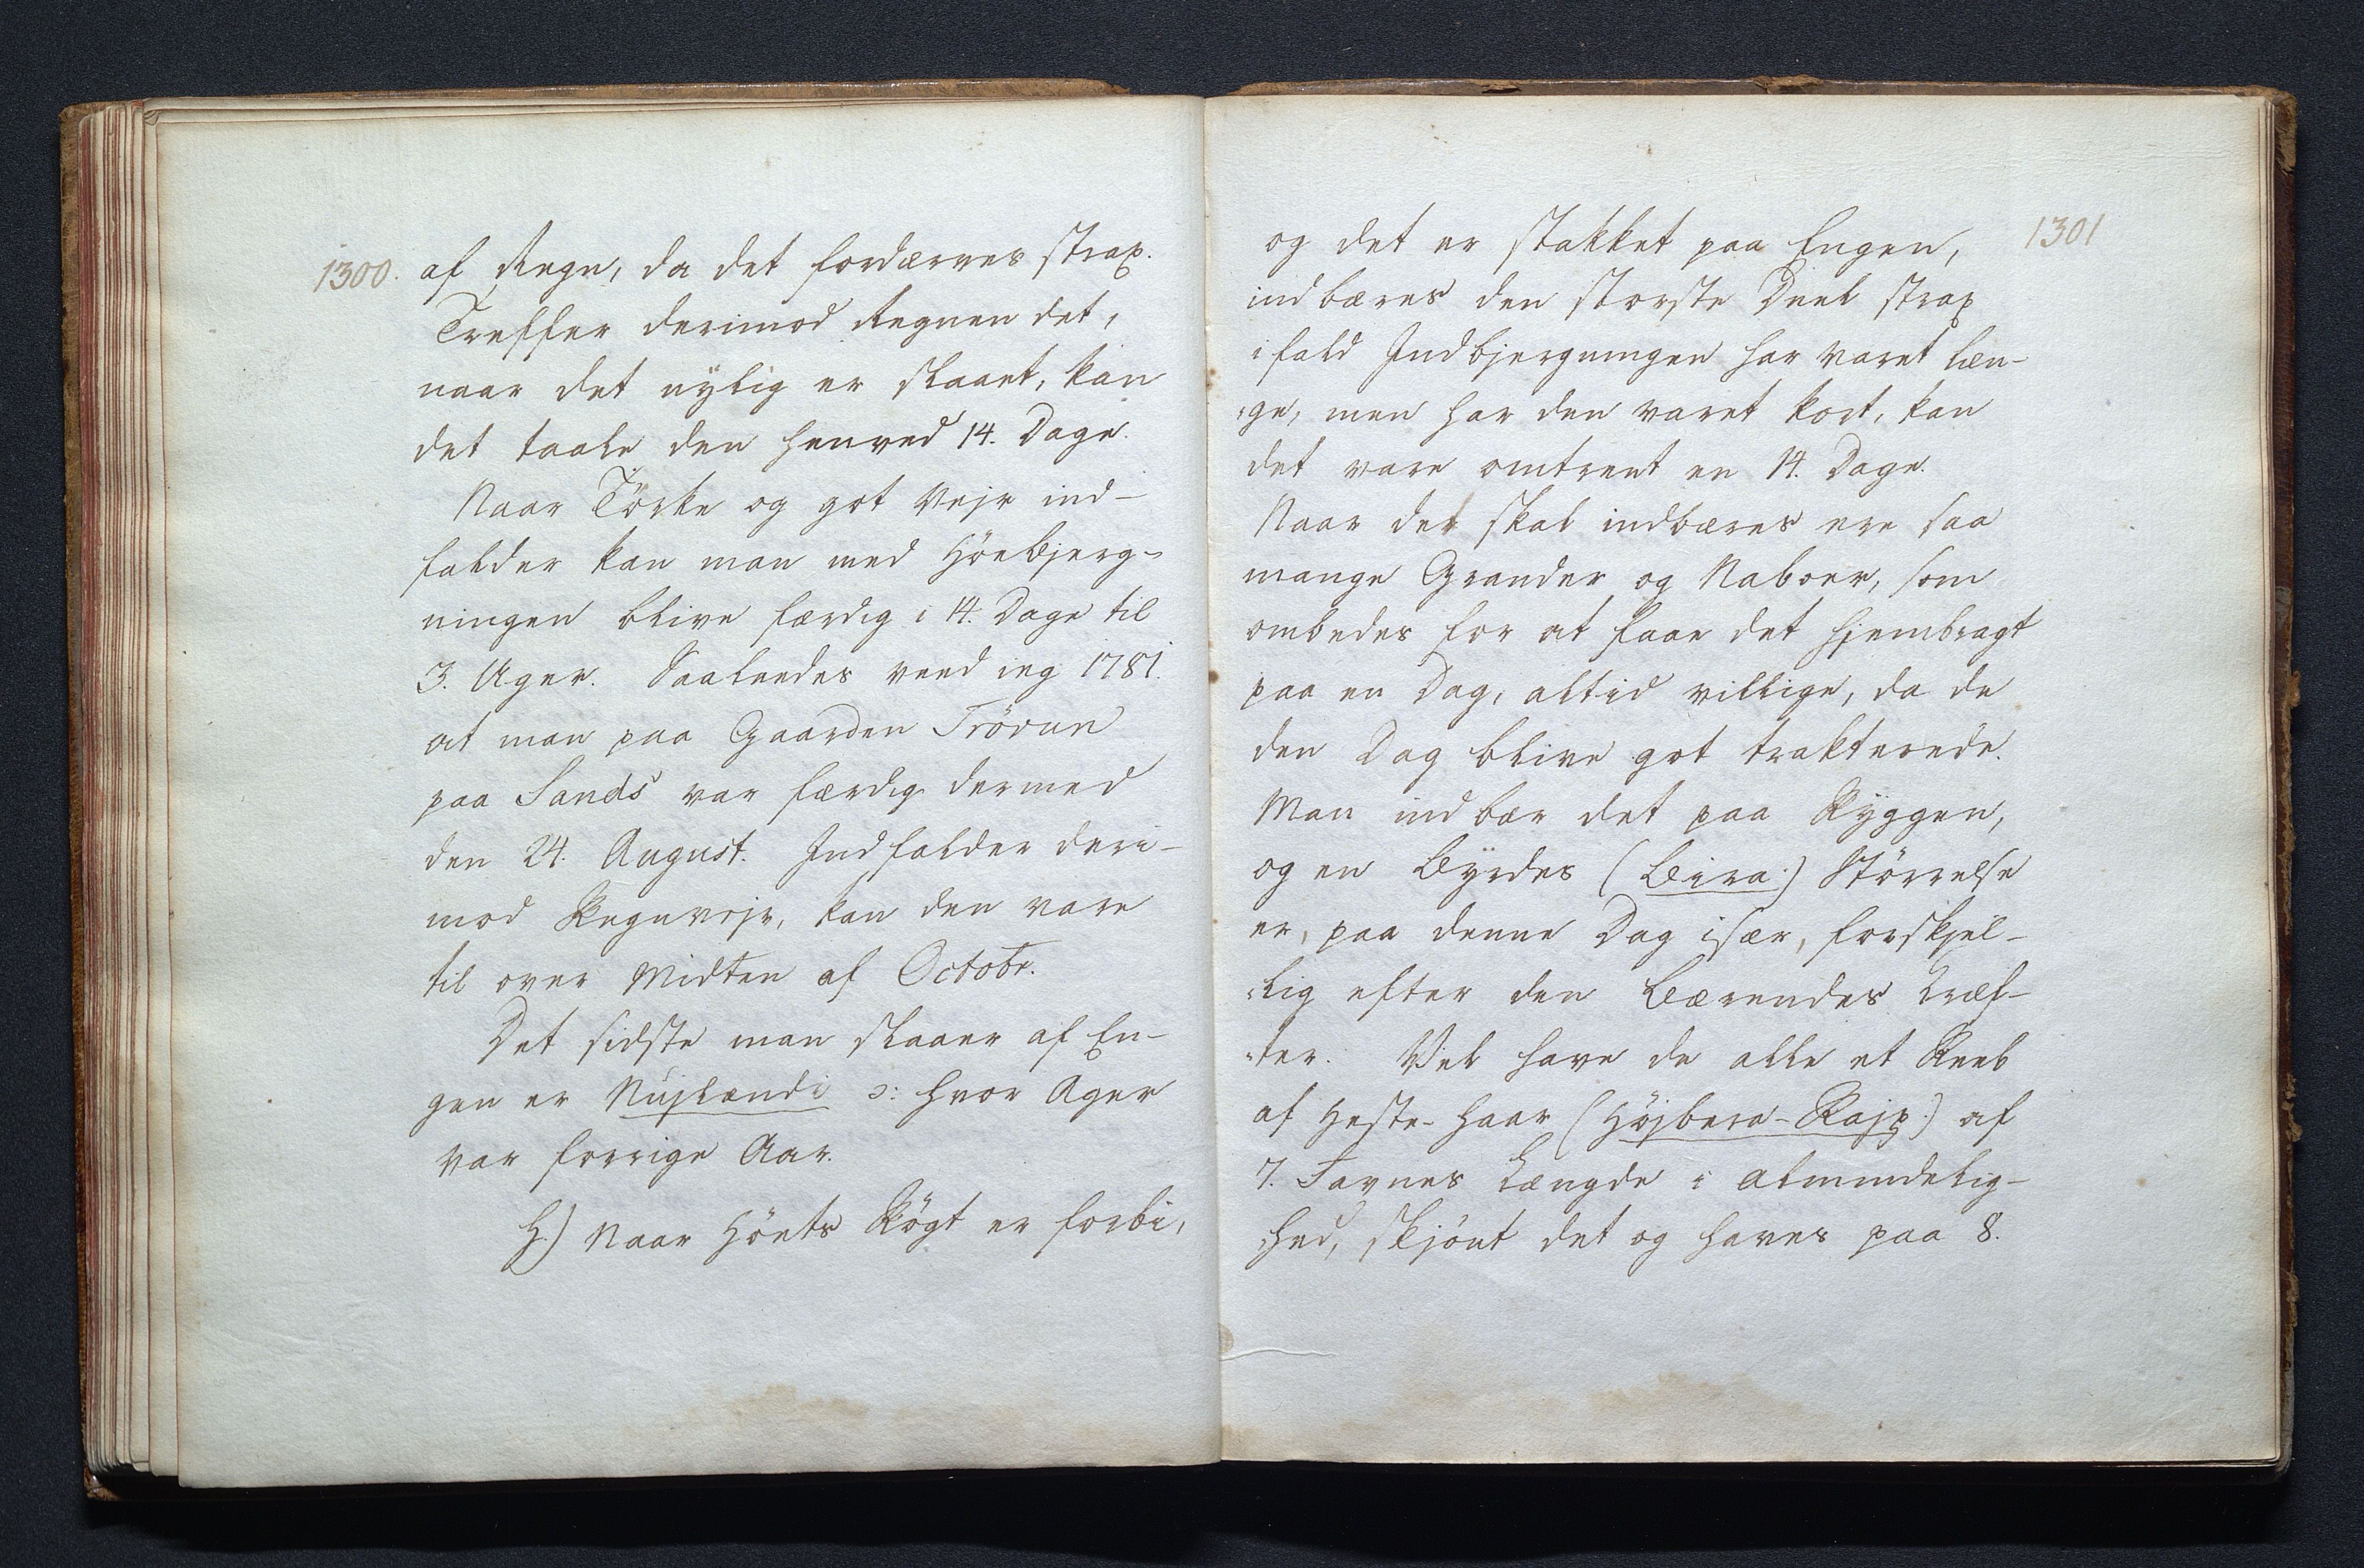 1300.
af Regn, da det fordærves strax.
Treffer derimod Regnen det,
naar det nÿlig er slaaet, kan
det taale den henved 14. Dage.
Naar Törke og got Vejr ind-
falder kan man med Höebjerg-
ningen blive færdig i 14. Dage til
3. Uger. Saaleedes veed ieg 1781.
at man paa Gaarden Tröðun
paa Sands var færdig dermed
den 24. August. Indfalder deri-
mod Regnvejr, kan den vare
til over Midten af Octobr.
Det sidste man slaaer af En-
gen er Nujlændi ɔ: hvor Ager
var forrige Aar.
H.) Naar Höets Rögt er forbi,
1301
og det er stakket paa Engen,
indbæres den største Deel strax
ifald Indbjergningen har varet læn-
:ge, men har den varet kort, kan
det vare omtrent en 14. Dage.
Naar det skal indbæres ere saa
mange Grander og Naboer, som
ombedes for at faae det hjembragt
paa en Dag, altid villige, da de
den Dag blive got trakterede.
Man indbær det paa Ryggen,
og en Byrdes (Bira:) Störrelse
er, paa denne Dag især, forskjel-
:lig efter den Bærendes Kræf-
:ter. Vel have de alle et Reeb
af Heste-Haar (Höjbera-Rajp:) af
7. Favnes Længde i Almindelig-
:hed, skjönt det og haves paa 8.